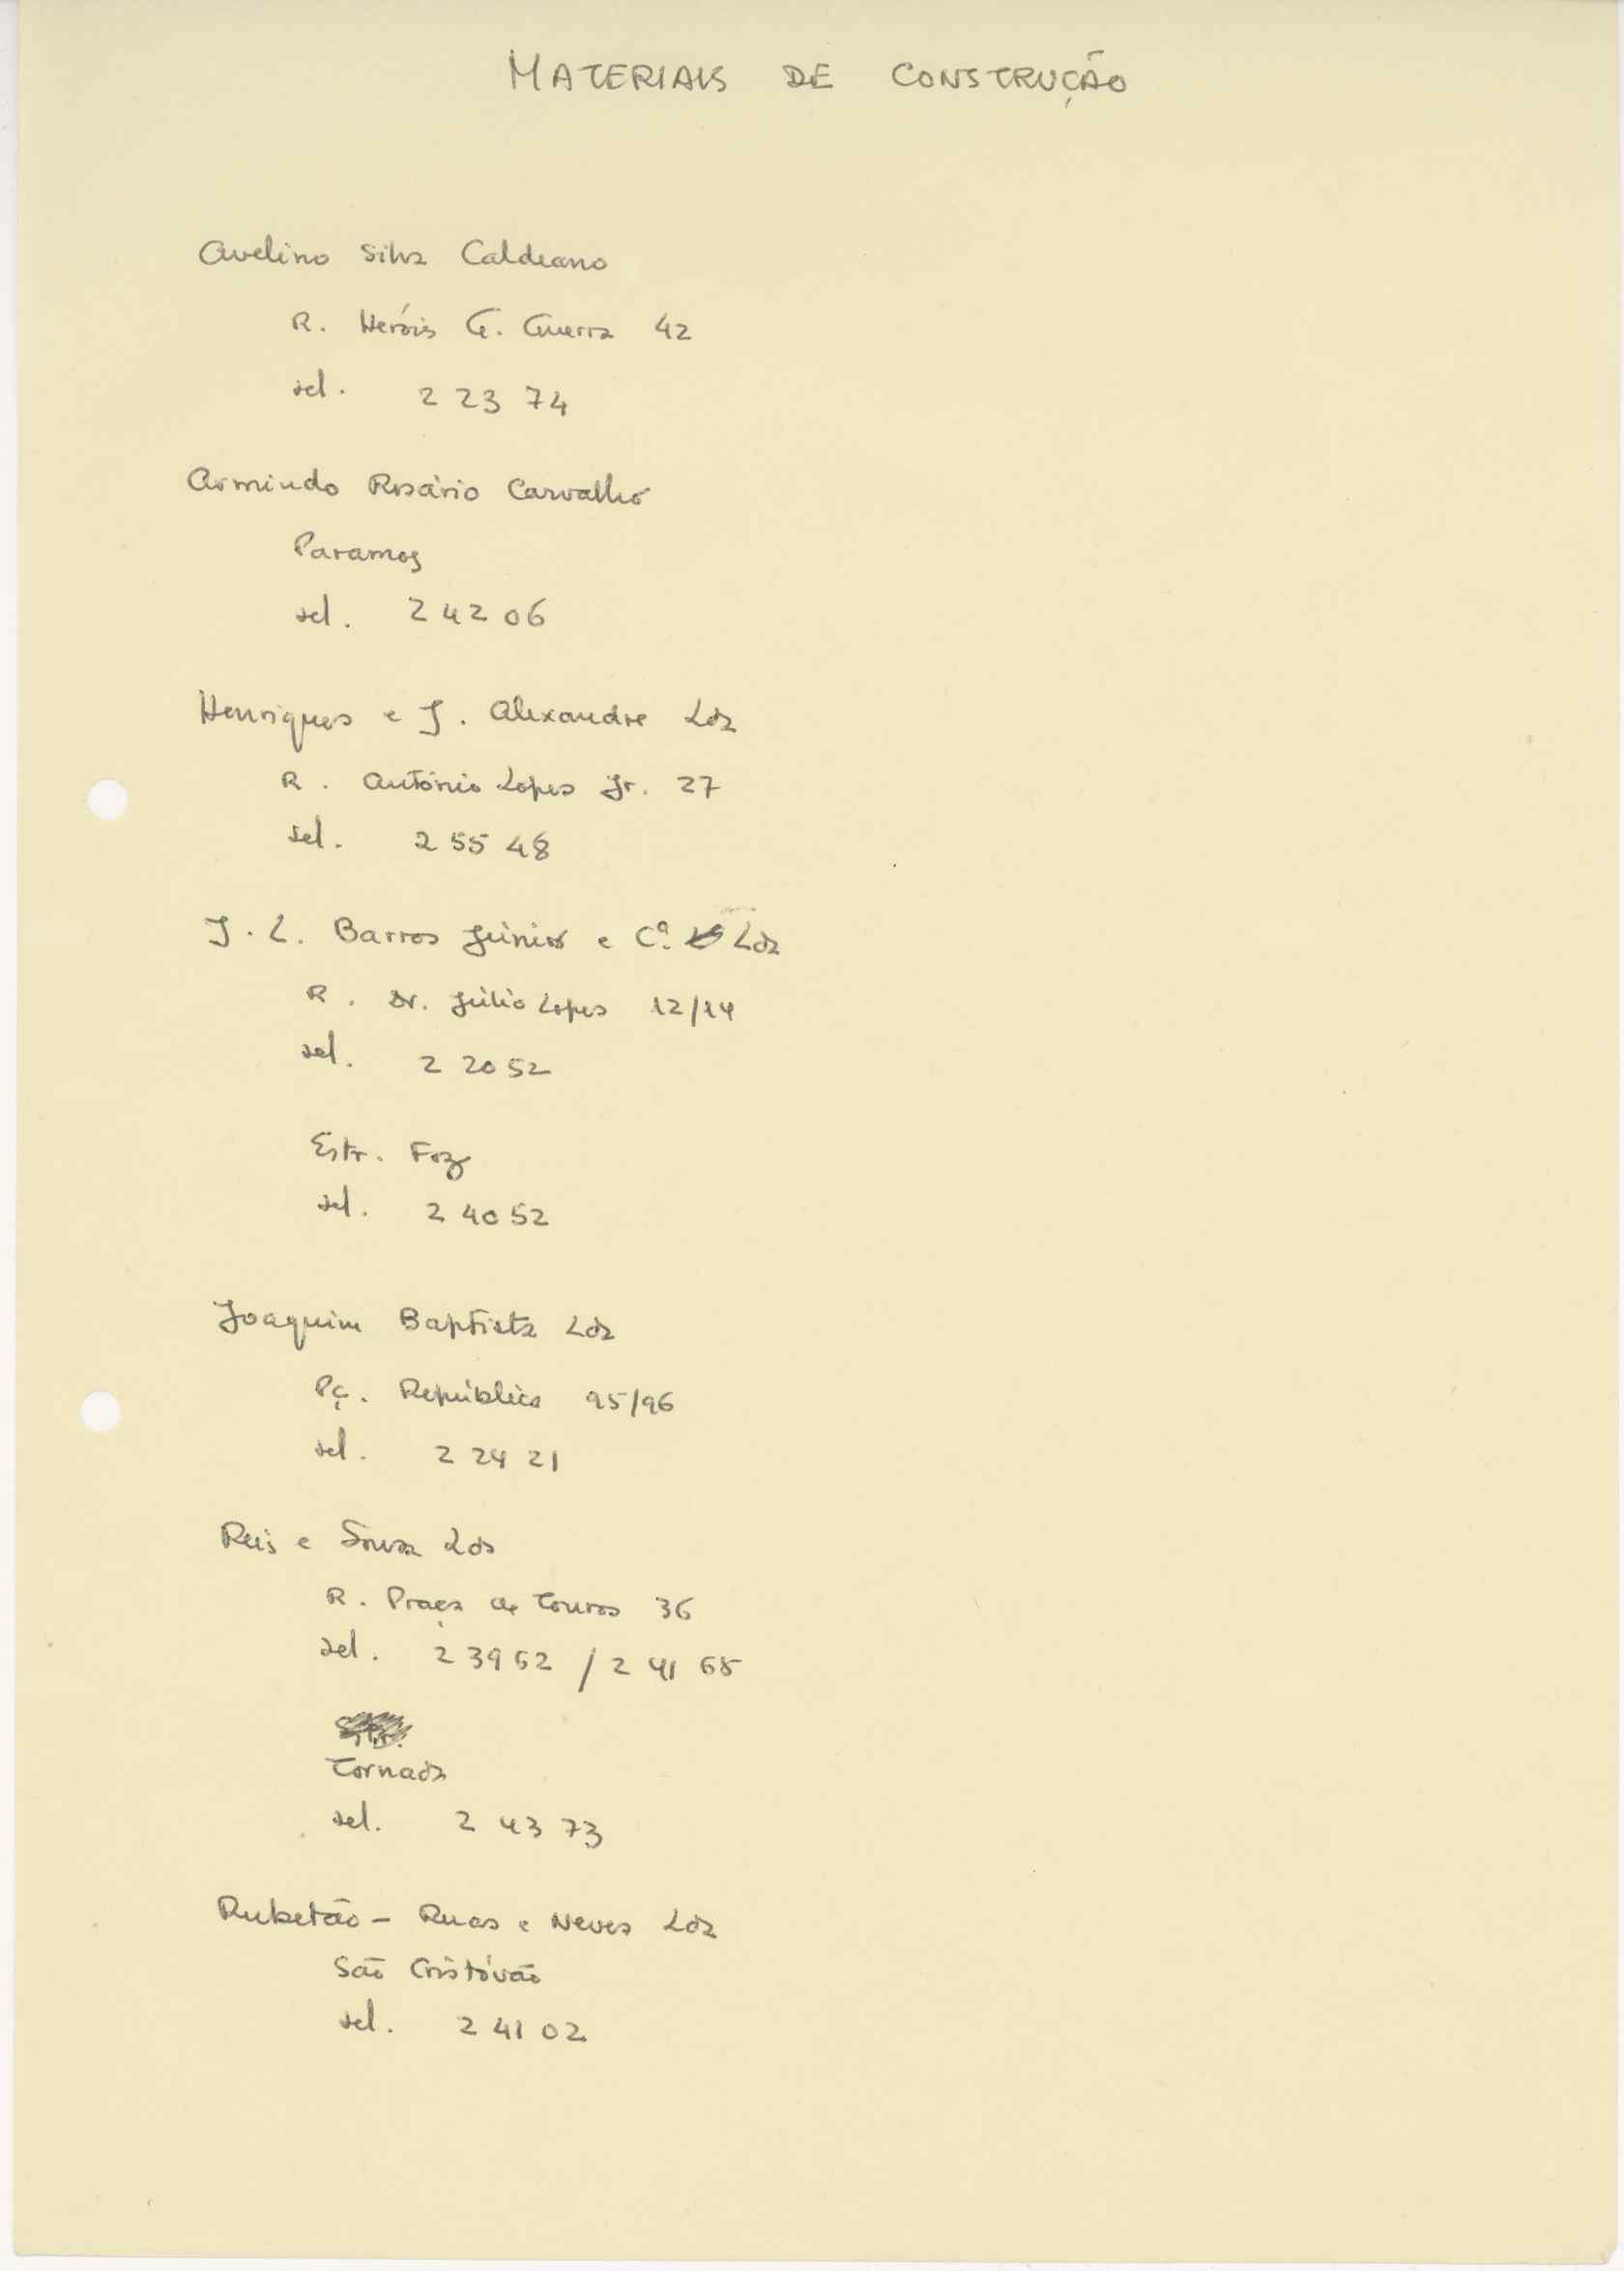 MATERIAIS DE CONSTRUÇÃO
Avelino Silva Caldeano
R. Heróis G. Guerra 42
tel. 2 23 74
Armindo Rosário Carvalho
Paramos
tel. 2 42 06
Henriques e J. Alexandre Lda
R. António Lopes Jr. 27
tel. 2 55 48
J. L. Barros Júnior e Cª. Lda
R. Dr. Júlio Lopes 12/14
tel. 2 20 52
Estr. Foz
tel. 2 40 52
Joaquim Baptista Lda
Pç. República 95/96
tel. 2 24 21
Reis e Sousa Lda
R. Praça de Touros 36
tel. 2 39 62 / 2 41 65
Tornada
tel. 2 43 73
Rubetão - Ruas e Neves Lda
São Cristóvão
tel. 2 41 02